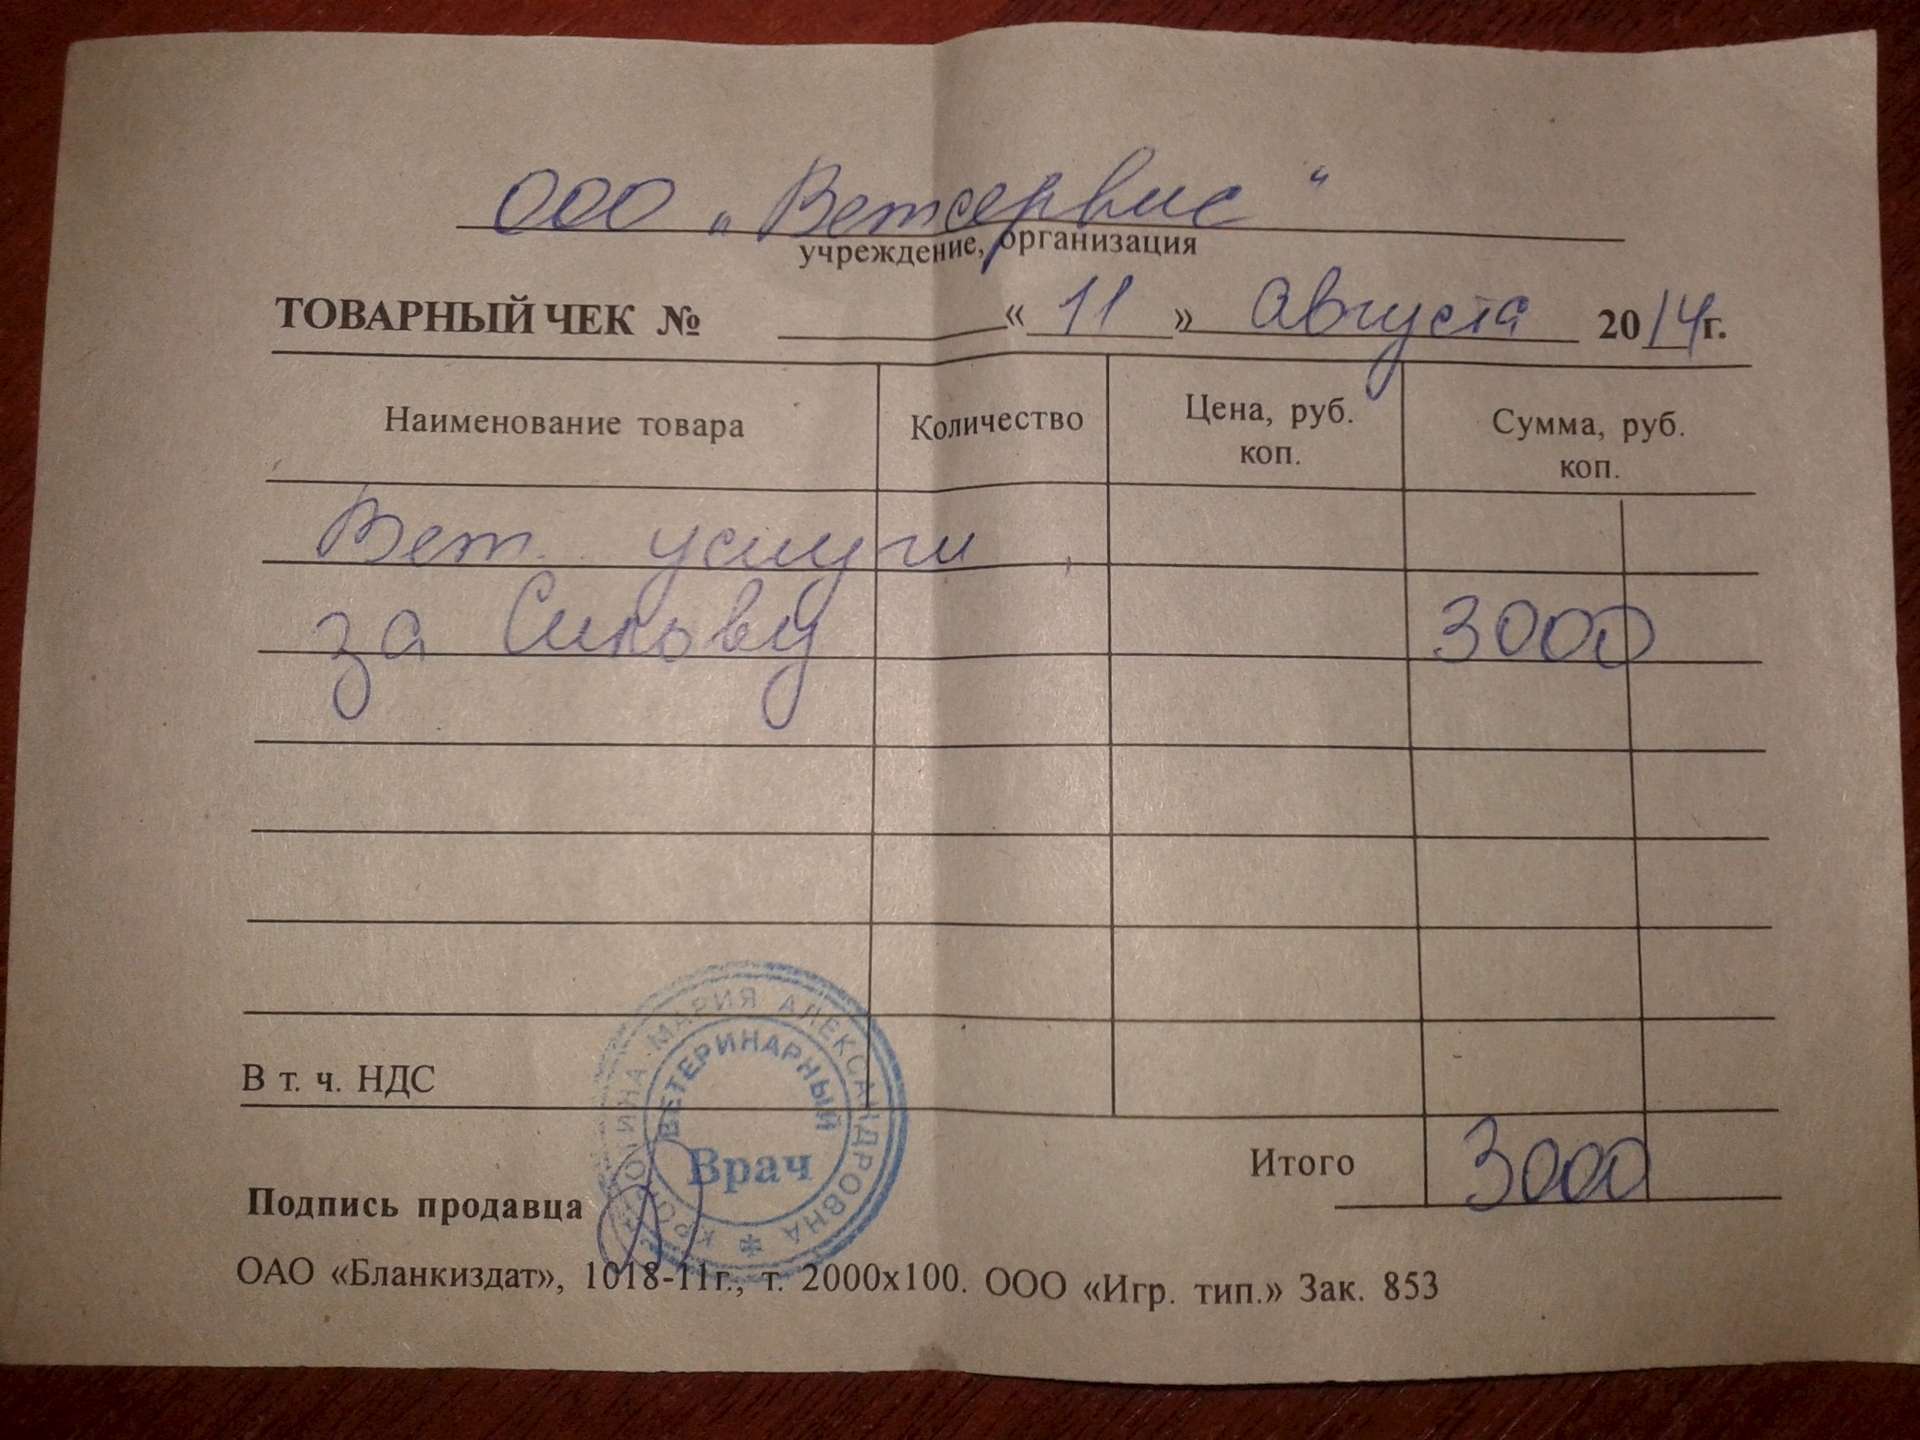 ООО „Ветсервис“
учреждение, организация
ТОВАРНЫЙ ЧЕК № «11» августа 2014г.
Наименование товара Количество Цена, руб. коп. Сумма, руб. коп.
Вет. услуги
за 3000
В т. ч. НДС
Итого 3000
Подпись продавца
МАРИЯ АЛЕКСАНДРОВНА
ВЕТЕРИНАРНЫЙ
Врач
ОАО «Бланкиздат», 1018-11г., т. 2000х100. ООО «Игр. тип.» Зак. 853